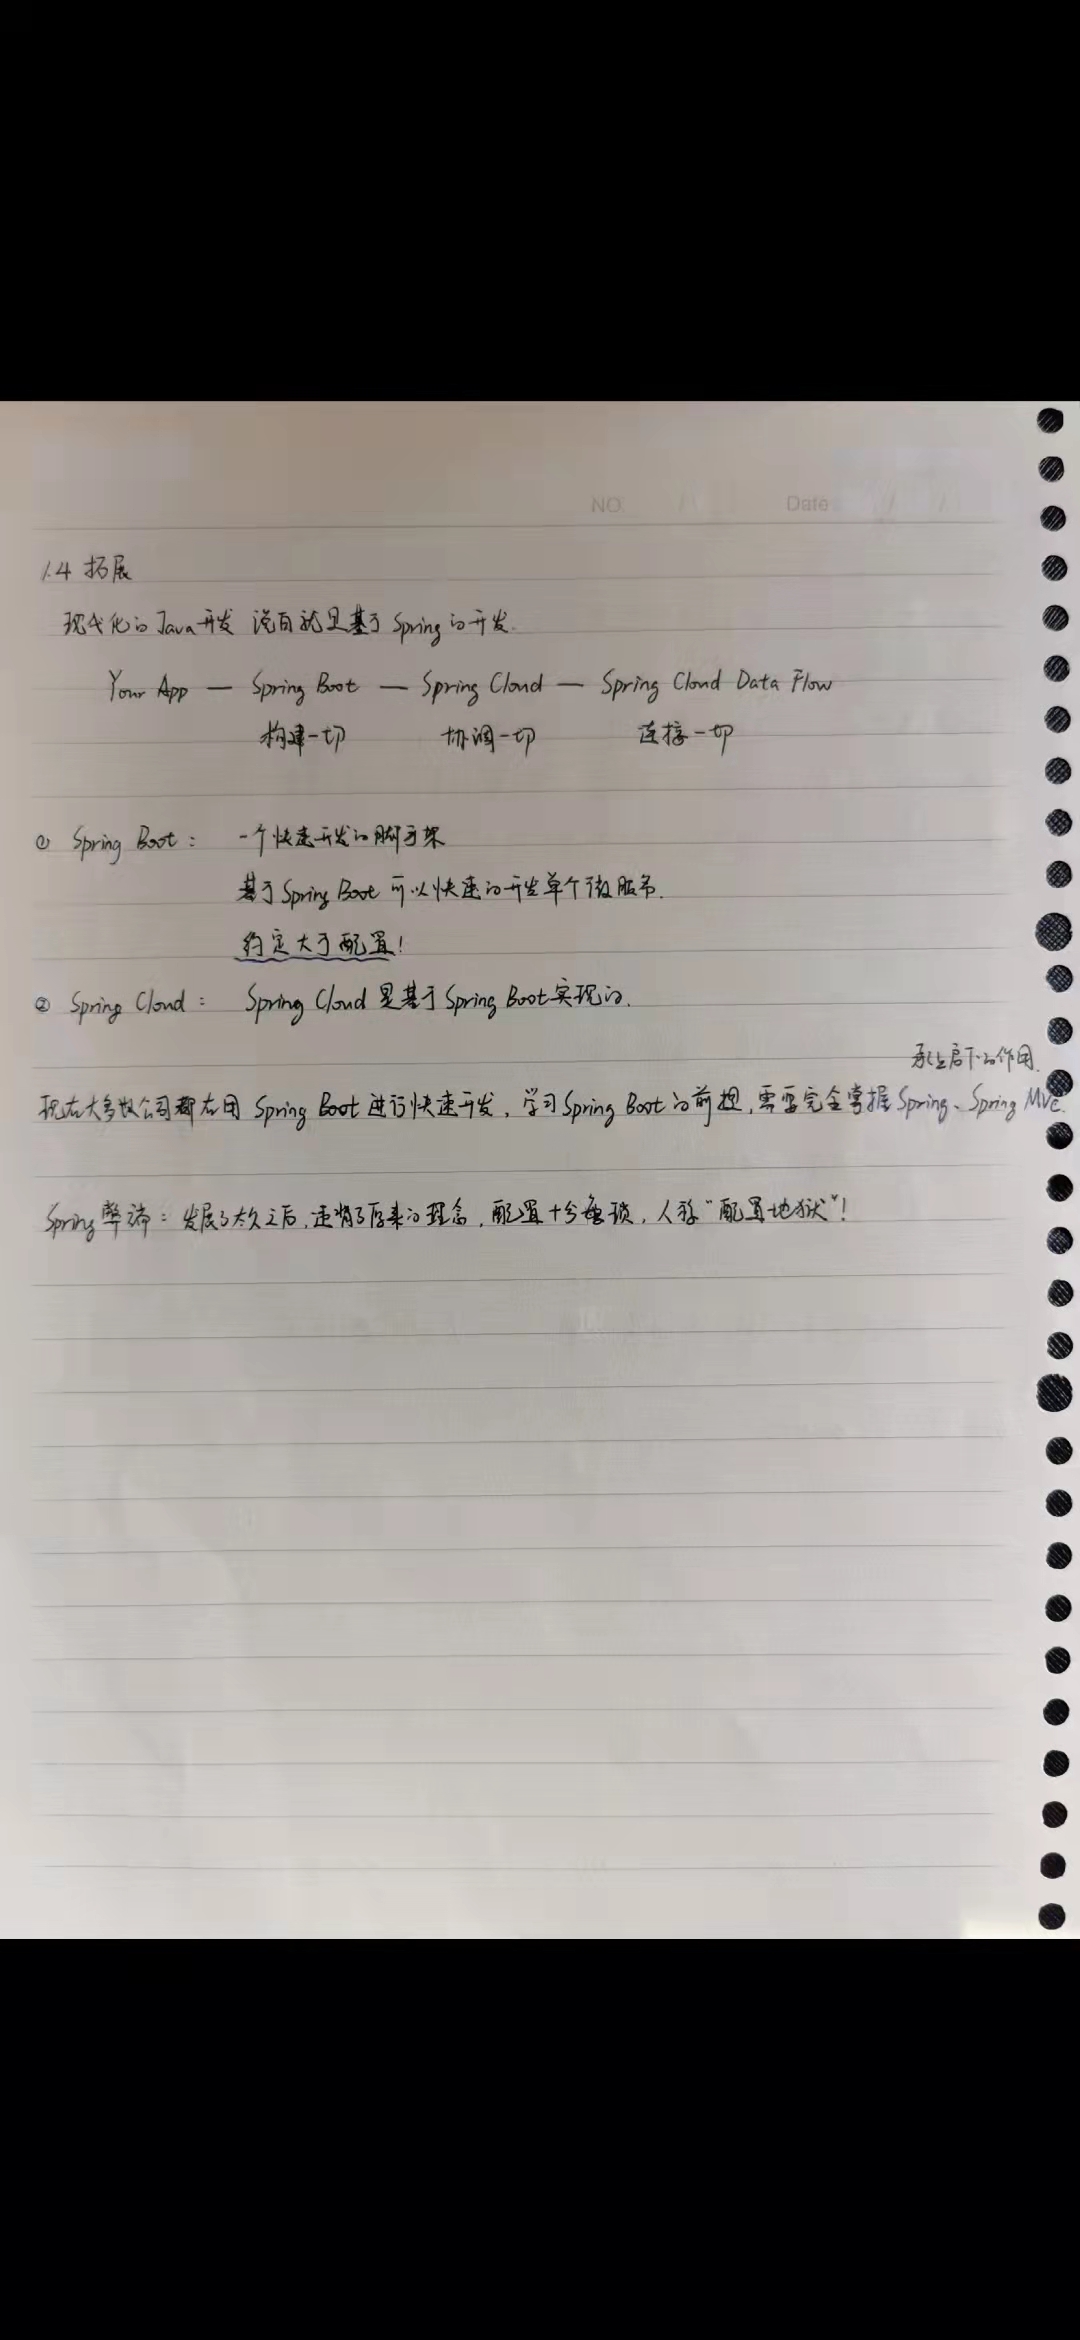 NO.
Date
1.4 拓展
现代化的Java开发 说白就是基于Spring的开发.
Your App — Spring Boot — Spring Cloud — Spring Cloud Data Flow
构建一切 协调一切 连接一切
① Spring Boot: 一个快速开发的脚手架
基于Spring Boot 可以快速的开发单个微服务.
约定大于配置!
② Spring Cloud: Spring Cloud 是基于Spring Boot实现的.
承上启下的作用.
现在大多数公司都在用 Spring Boot 进行快速开发, 学习Spring Boot的前提, 需要完全掌握Spring、Spring MVC.
Spring弊端: 发展了太久之后, 违背了原来的理念, 配置十分繁琐, 人称"配置地狱"!